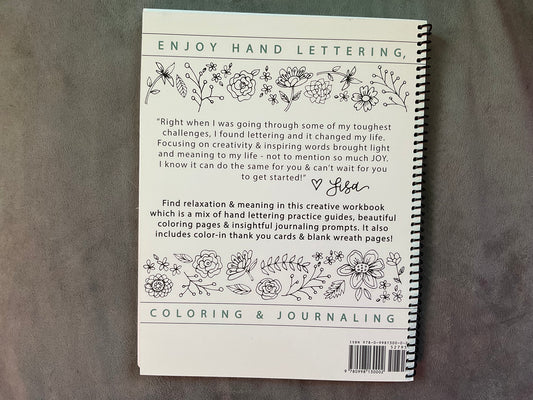 ENJOY HAND LETTERING,
"Right when I was going through some of my toughest
challenges, I found lettering and it changed my life.
Focusing on creativity & inspiring words brought light
and meaning to my life - not to mention so much JOY.
I know it can do the same for you & can't wait for you
to get started!"
♡ Lisa
Find relaxation & meaning in this creative workbook
which is a mix of hand lettering practice guides, beautiful
coloring pages & insightful journaling prompts. It also
includes color-in thank you cards & blank wreath pages!
COLORING & JOURNALING
ISBN 978-0-9981300-0-
9 780998 130002